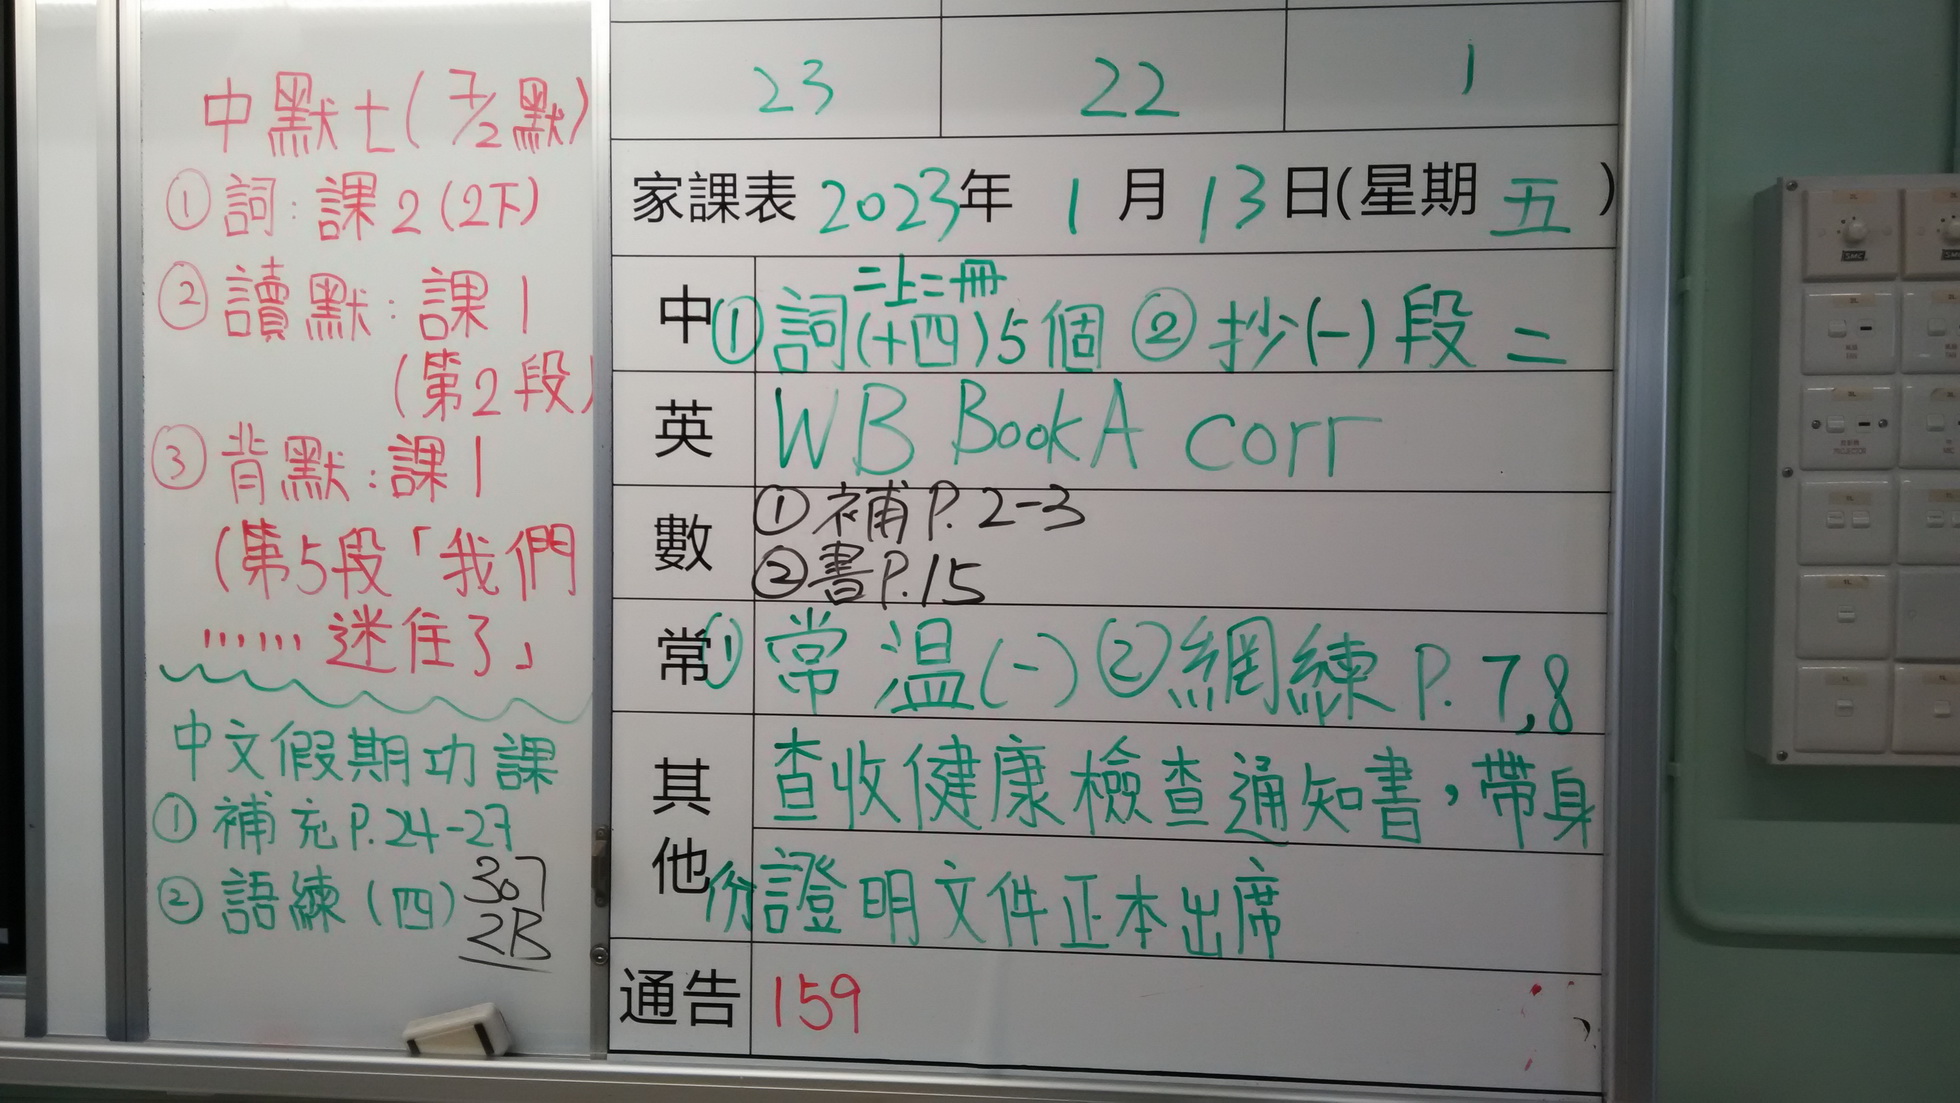 中默七(7/2默)
①詞:課2(2下)
②讀默:課1
(第2段)
③背默:課1
(第5段「我們
......迷住了」
中文假期功課
①補充P.24-27
②語練(四)
307
2B
23 22 1
家課表 2023年 1月 13日(星期五)
二上二冊
中 ①詞(十四)5個 ②抄(一)段二
英 WB BookA corr
數 ①補P.2-3
②書P.15
常 ①常溫(一) ②網練P.7,8
其他 查收健康檢查通知書,帶身
份證明文件正本出席
通告 159